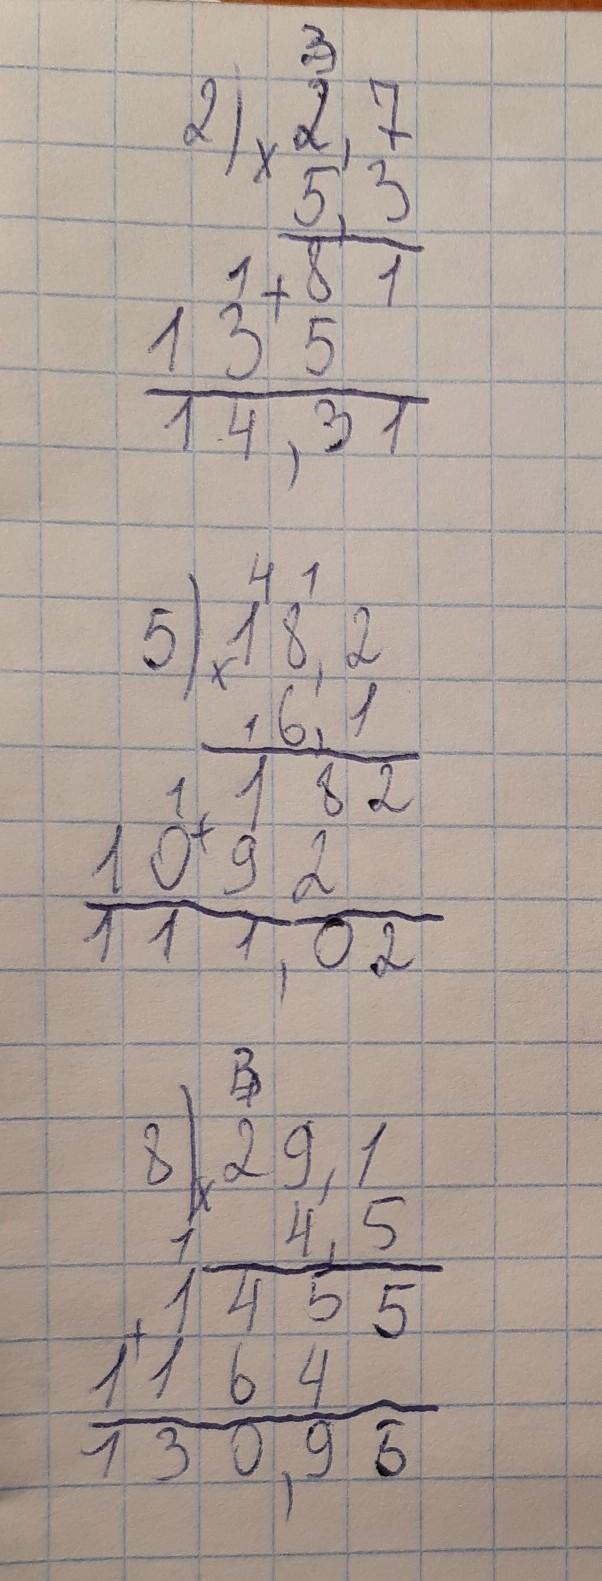 3
2) × 2,7
5,3
1 + 8 1
1 3 5
1 4,3 1
4 1
5) × 18,2
1 6,1
1 1 8 2
1 0 + 9 2
1 1 1,0 2
8) × 2 9,1
1 4,5
1 4 5 5
+ 1 1 6 4
1 3 0,9 5